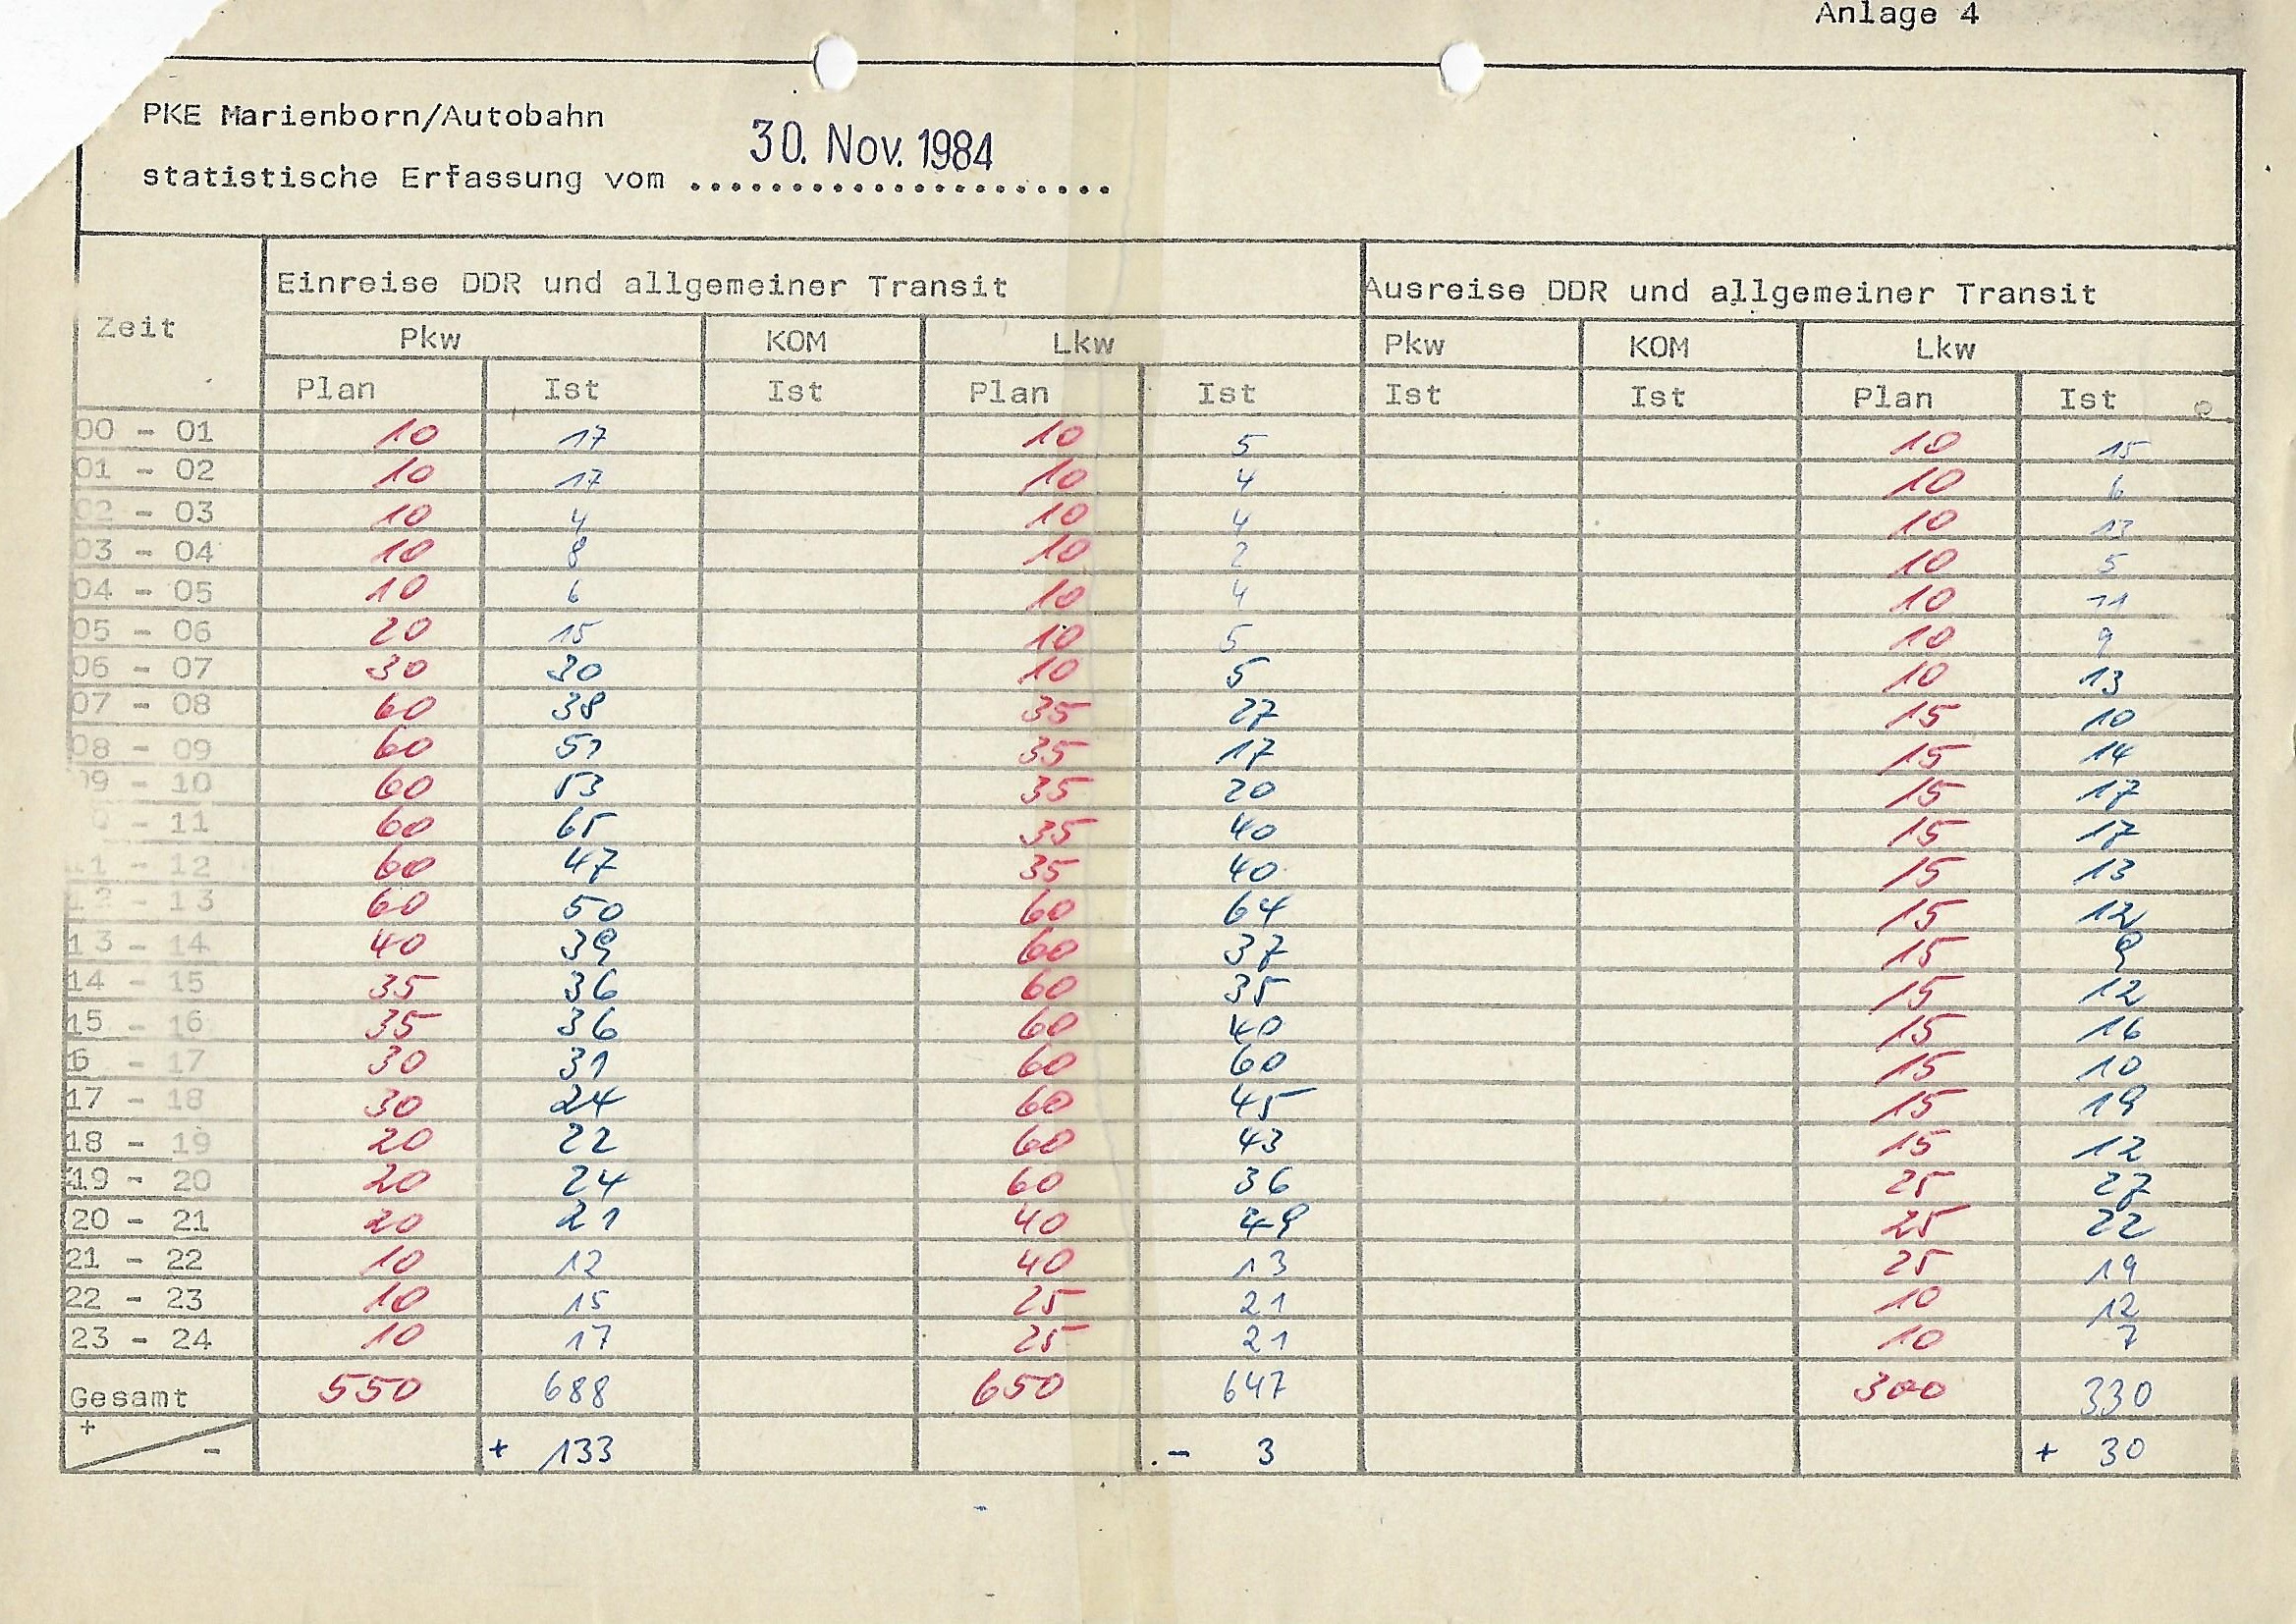 Anlage 4
PKE Marienborn/Autobahn
30. Nov. 1984
statistische Erfassung vom ......................
Zeit Einreise DDR und allgemeiner Transit Ausreise DDR und allgemeiner Transit
Pkw KOM Lkw Pkw KOM Lkw
Plan Ist Ist Plan Ist Ist Ist Plan Ist
00 - 01 10 17 10 5 10 15
01 - 02 10 17 10 4 10 6
02 - 03 10 4 10 4 10 13
03 - 04 10 8 10 2 10 5
04 - 05 10 6 10 4 10 11
05 - 06 20 15 10 5 10 9
06 - 07 30 30 10 5 10 13
07 - 08 60 38 35 27 15 10
08 - 09 60 51 35 17 15 14
09 - 10 60 53 35 20 15 17
- 11 60 65 35 40 15 17
11 - 12 60 47 35 40 15 13
12 - 13 60 50 60 64 15 12
13 - 14 40 39 60 37 15 9
14 - 15 35 36 60 35 15 12
15 - 16 35 36 60 40 15 16
6 - 17 30 31 60 60 15 10
17 - 18 30 24 60 45 15 19
18 - 19 20 22 60 43 15 12
19 - 20 20 24 60 36 25 27
20 - 21 20 21 40 49 25 22
21 - 22 10 12 40 13 25 19
22 - 23 10 15 25 21 10 12
23 - 24 10 17 25 21 10 7
Gesamt 550 688 650 647 300 330
+ - + 133 - 3 + 30